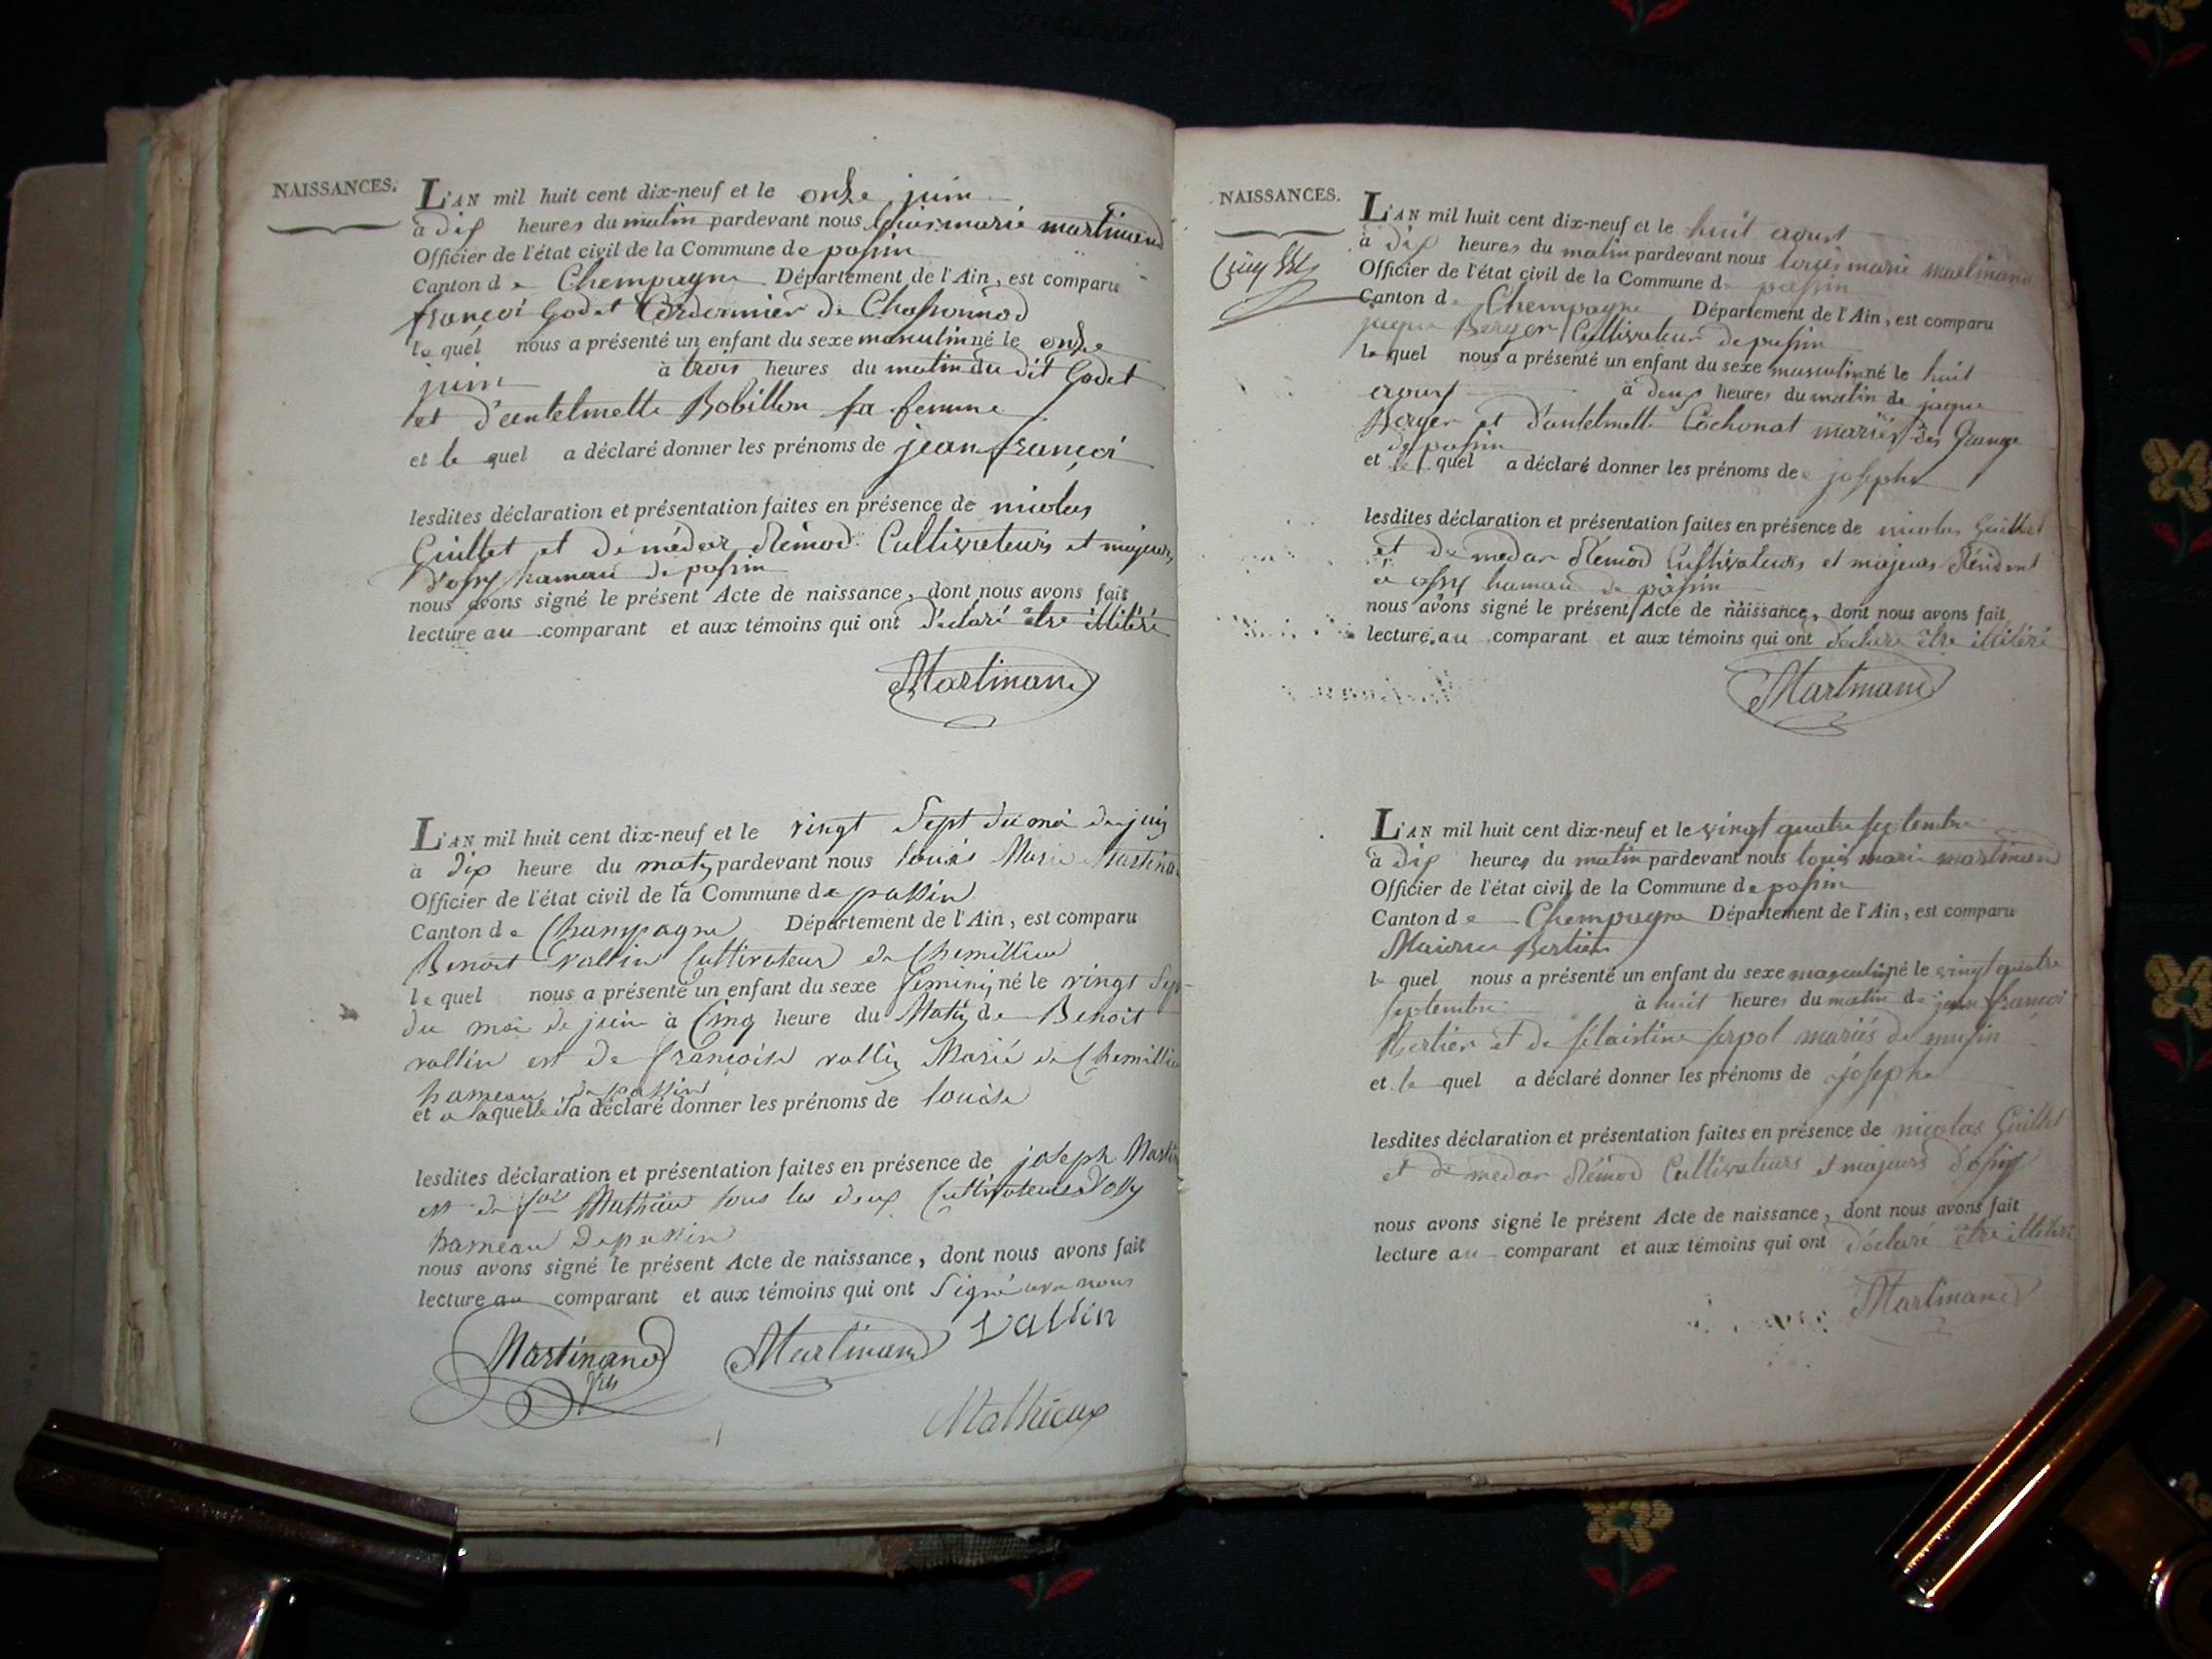 NAISSANCES.
L'AN mil huit cent dix-neuf et le onze juin
à dix heures du matin pardevant nous Louis marie martinand
Officier de l'état civil de la Commune de passin
Canton de Chempagne Département de l'Ain, est comparu
françoi Godet Cordonnier de Chassonnod
le quel nous a présenté un enfant du sexe masculin né le onze
juin à trois heures du matin du dit Godet
et d'antelmette Bobillon sa femme
et le quel a déclaré donner les prénoms de jean françoi
lesdites déclaration et présentation faites en présence de nicolas
Guillet et de médar Rémod Cultivateurs et majeurs
d'ossy hamau de passin
nous avons signé le présent Acte de naissance, dont nous avons fait
lecture au comparant et aux témoins qui ont déclaré être illitéré
Martinand
L'AN mil huit cent dix-neuf et le vingt Sept du moi de juin
à dix heure du matin pardevant nous Louis Marie Martina
Officier de l'état civil de la Commune de passin
Canton de Champagne Département de l'Ain, est comparu
Benoit vallin Cultivateur de Chemillieu
le quel nous a présenté un enfant du sexe feminin né le vingt Sep
du moi de juin à Cinq heure du Matin de Benoit
vallin est de françoise vallin Marié de Chemillieu
hameau de passin
et a laquelle il a déclaré donner les prénoms de louise
lesdites déclaration et présentation faites en présence de joseph Martin
est de fois Mathieu tous les deux Cultivateurs d'ossy
hameau de passin
nous avons signé le présent Acte de naissance, dont nous avons fait
lecture au comparant et aux témoins qui ont Signé avec nous
Martinand Martinand Vallin
Mathieux
NAISSANCES.
L'AN mil huit cent dix-neuf et le huit aoust
à dix heures du matin pardevant nous louis marie martinand
Officier de l'état civil de la Commune de passin
Canton de Chempagne Département de l'Ain, est comparu
jaque Berger Cultivateur de passin
le quel nous a présenté un enfant du sexe masculin né le huit
aoust à deux heures du matin de jaque
Berger et d'antelmette Cochonat mariés des Grange
de passin
et le quel a déclaré donner les prénoms de josephe
lesdites déclaration et présentation faites en présence de nicolas Guillet
et de medar Rémod Cultivateurs et majeurs Résident
à ossy hamau de passin
nous avons signé le présent Acte de naissance, dont nous avons fait
lecture au comparant et aux témoins qui ont déclaré être illitéré
Martinand
L'AN mil huit cent dix-neuf et le vingt quatre septembre
à dix heures du matin pardevant nous louis marie martinand
Officier de l'état civil de la Commune de passin
Canton de Chempagne Département de l'Ain, est comparu
Bertier
le quel nous a présenté un enfant du sexe masculin né le vingt quatre
septembre à huit heures du matin de jean françoi
Bertier et de serpol mariés de
et le quel a déclaré donner les prénoms de josephe
lesdites déclaration et présentation faites en présence de nicolas Guillet
et de medar Rémod Cultivateurs et majeurs d'ossy
nous avons signé le présent Acte de naissance, dont nous avons fait
lecture au comparant et aux témoins qui ont déclaré être illitéré
Martinand